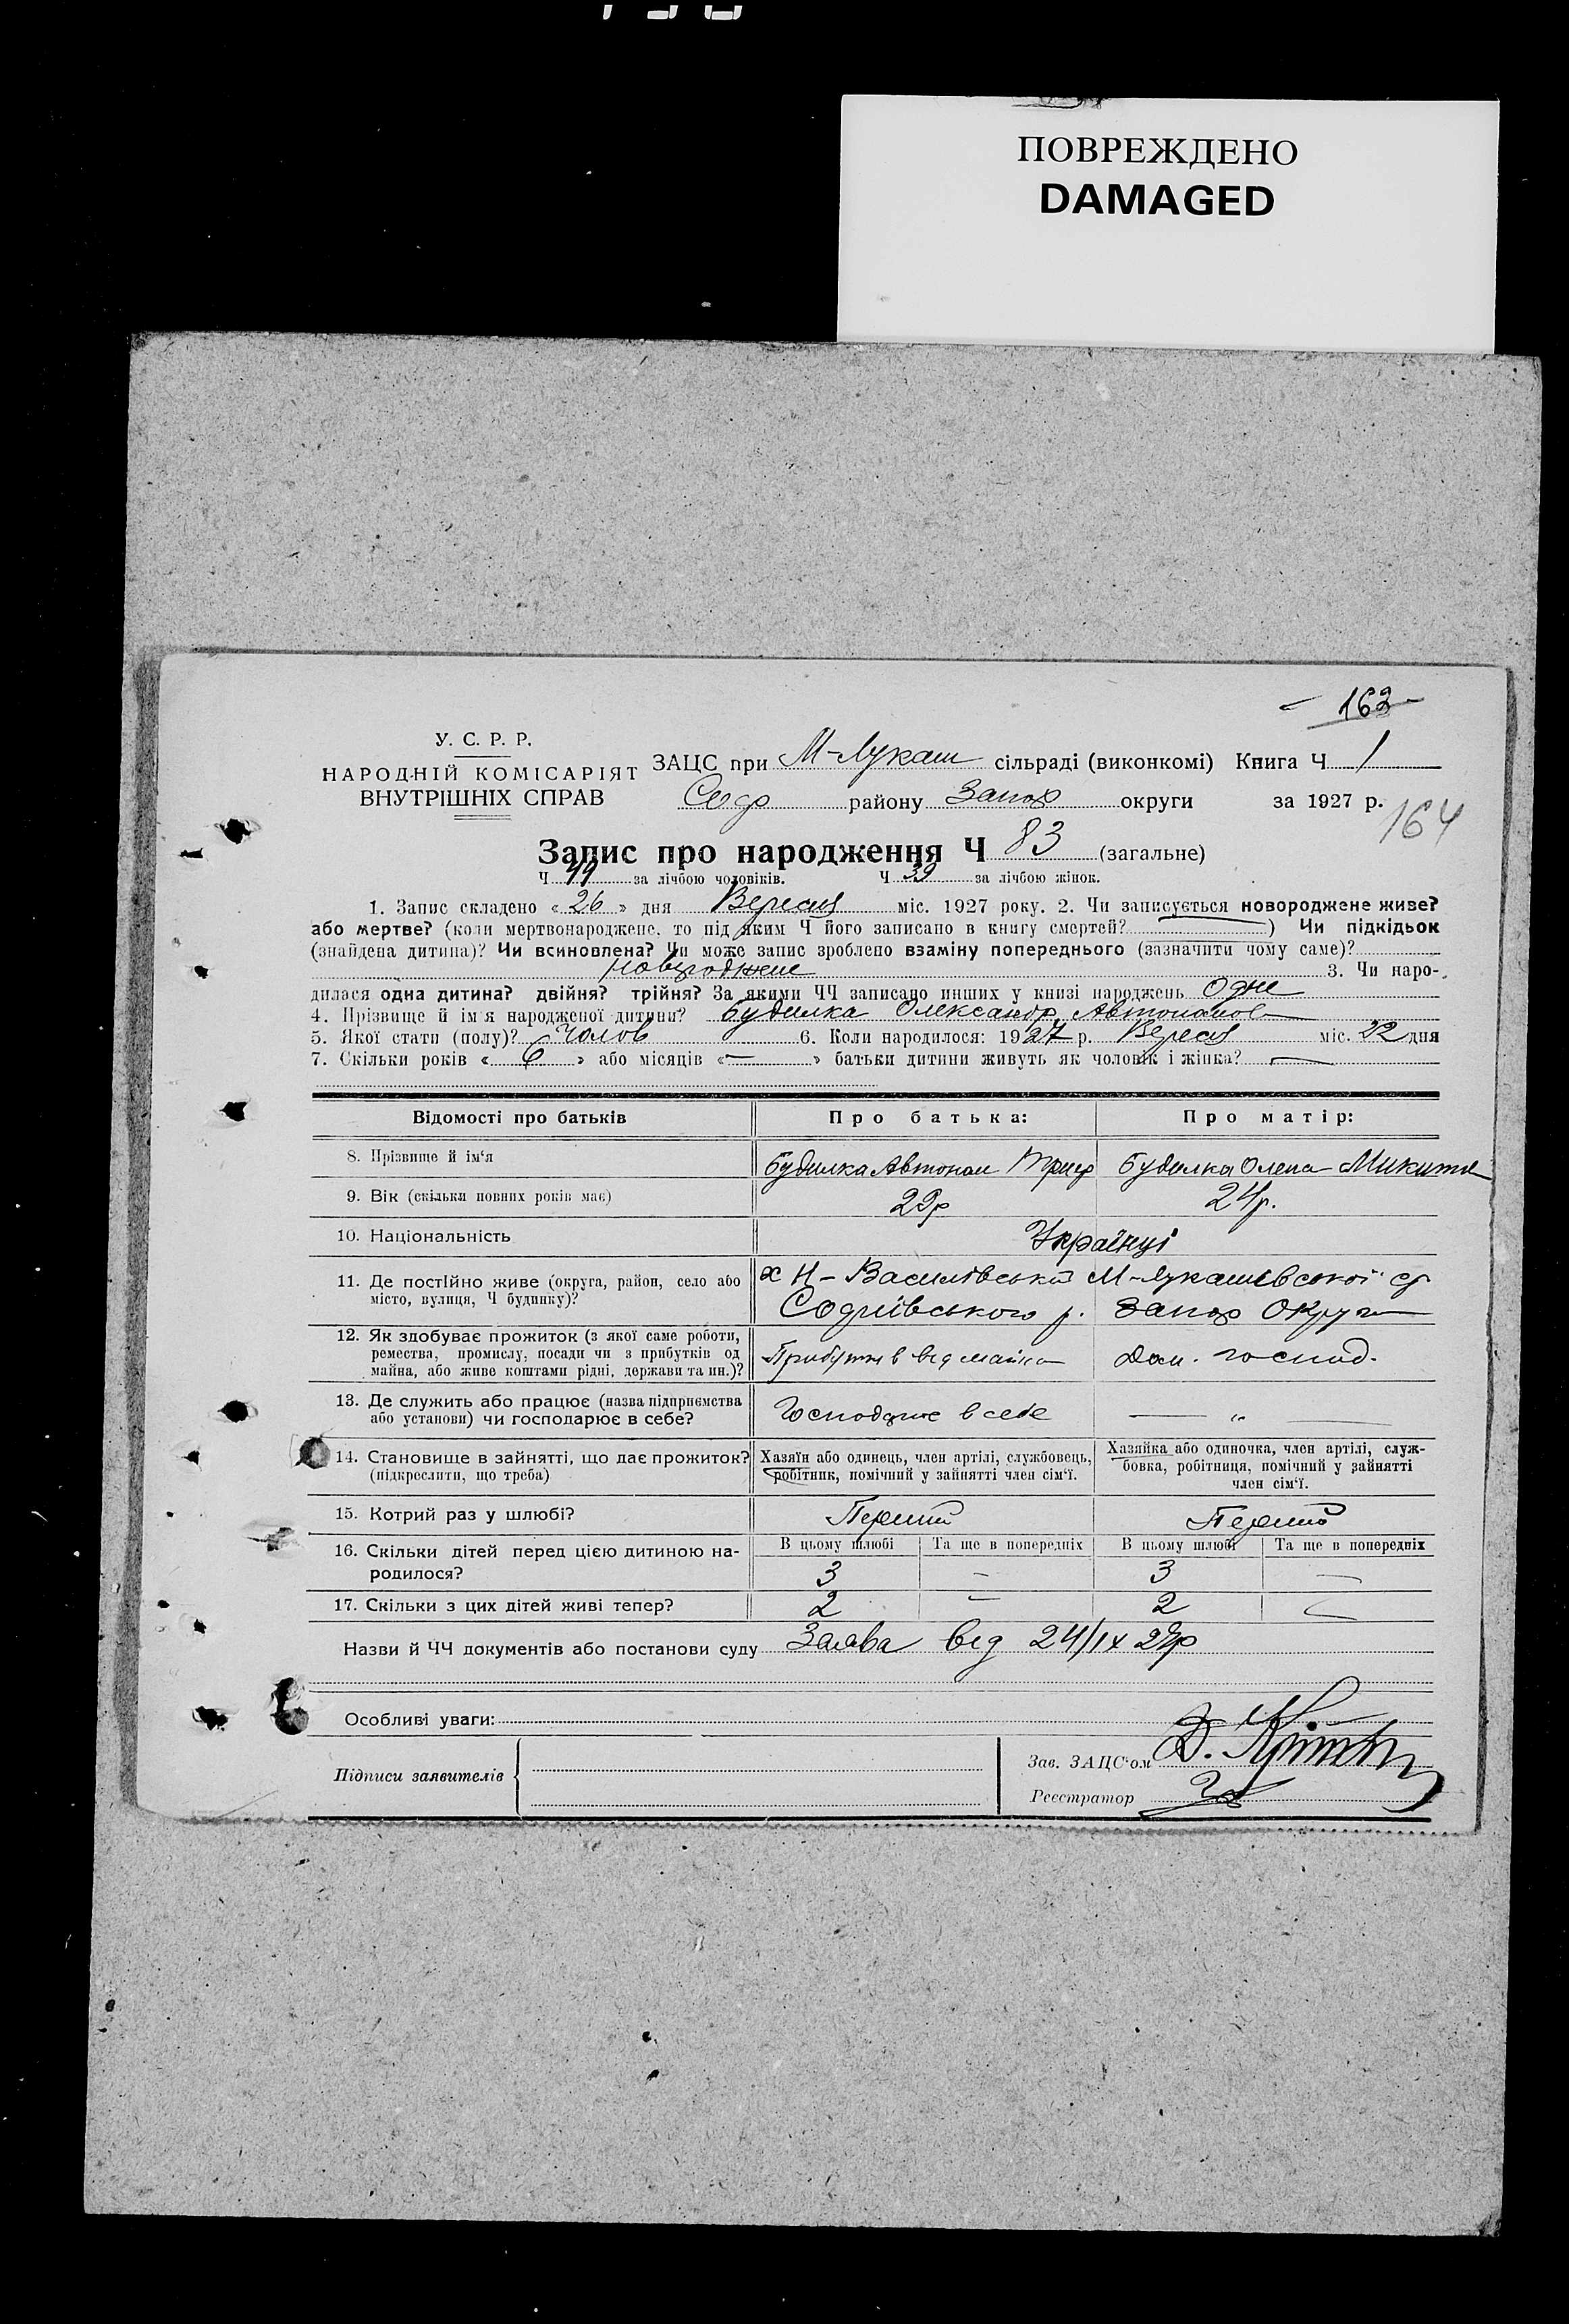 ПОВРЕЖДЕНО
DAMAGED
- 163 -
У. С. Р. Р.
НАРОДНІЙ КОМІСАРІЯТ
ВНУТРІШНІХ СПРАВ
ЗАЦС при М-Лукаш сільраді (виконкомі) Книга Ч 1
району Запор округи за 1927 р.
164
Запис про народження Ч 83 (загальне)
Ч 44 за лічбою чоловіків. Ч 39 за лічбою жінок.
1. Запис складено « 26 » дня Вересня міс. 1927 року. 2. Чи записується новороджене живе?
або мертве? (коли мертвонароджене, то під яким Ч його записано в книгу смертей? ) Чи підкідьок
(знайдена дитина)? Чи всиновлена? Чи може запис зроблено взаміну попереднього (зазначити чому саме)?
новороджене 3. Чи наро-
дилася одна дитина? двійня? трійня? За якими ЧЧ записано инших у книзі народжень Одне
4. Прізвище й ім'я народженої дитини? Будилка Олександр Автономов
5. Якої стати (полу)? Чолов 6. Коли народилося: 1927 р. Вересня міс. 22 дня
7. Скільки років « 6 » або місяців « — » батьки дитини живуть як чоловік і жінка? —
Відомості про батьків Про батька: Про матір:
8. Прізвище й ім'я Будилка Автоном Будилка Олена Микит
9. Вік (скільки повних років має) 29р 24р.
10. Національність Українці
11. Де постійно живе (округа, район, село або місто, вулиця, Ч будинку)?
х Н-Василівський М-Лукашівської ср
р. Запор Округи
12. Як здобуває прожиток (з якої саме роботи,
ремества, промислу, посади чи з прибутків од
майна, або живе коштами рідні, держави та ин.)?
Прибутків від майна Дом. господ.
13. Де служить або працює (назва підприємства
або установи) чи господарює в себе?
Господарює в себе — „ —
14. Становище в зайнятті, що дає прожиток?
(підкреслити, що треба)
Хазяїн або одинець, член артілі, службовець,
робітник, помічний у зайнятті член сім'ї.
Хазяйка або одиночка, член артілі, служ-
бовка, робітниця, помічний у зайнятті
член сім'ї.
15. Котрий раз у шлюбі? Перший Перший
16. Скільки дітей перед цією дитиною на-
родилося?
В цьому шлюбі Та ще в попередніх В цьому шлюбі Та ще в попередніх
3 — 3 —
17. Скільки з цих дітей живі тепер? 2 — 2 —
Назви й ЧЧ документів або постанови суду Заява від 24/IX 27р
Особливі уваги:
Підписи заявителів
Зав. ЗАЦС'ом
Реєстратор